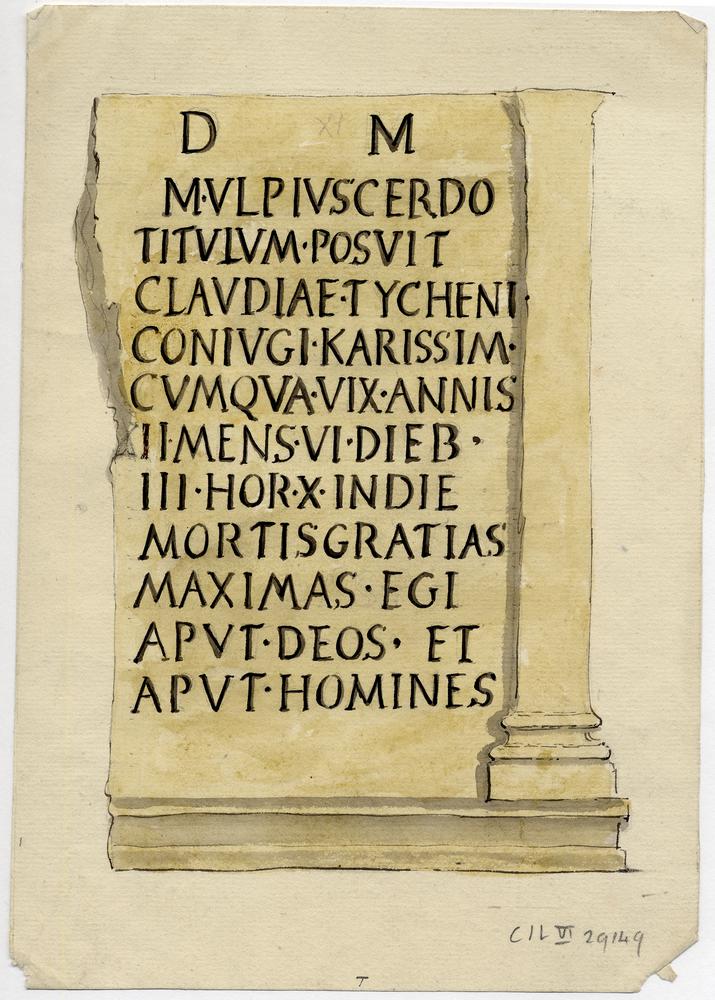 D M
M·VLPIVSCERDO
TITVLVM·POSVIT
CLAVDIAE·TYCHENI·
CONIVGI·KARISSIM·
CVMQVA·VIX·ANNIS
XII·MENS·VI·DIEB·
III·HOR·X·INDIE
MORTISGRATIAS
MAXIMAS·EGI
APVT·DEOS· ET
APVT·HOMINES
CIL VI 29149